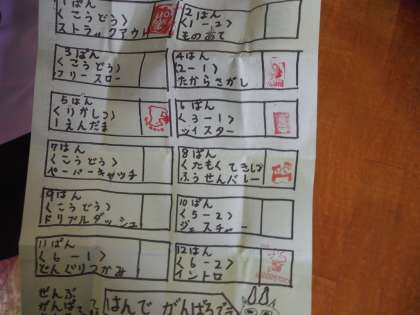 1ばん
<こうどう>
ストラックアウト
2ばん
<1-2>
ものあて
3ばん
<こうどう>
フリースロー
4ばん
<2-1>
たからさがし
5ばん
<りかしつ>
1えんだま
6ばん
<3-1>
ツイスター
7ばん
<こうどう>
ペーパーキャッチ
8ばん
<たもくてきしつ>
ふうせんバレー
9ばん
<こうどう>
ドリブルダッシュ
10ばん
<5-2>
ジェスチャー
11ばん
<6-1>
どんぐりつかみ
12ばん
<6-2>
イントロ
ぜんぶ
がんばって
はんで がんばろう